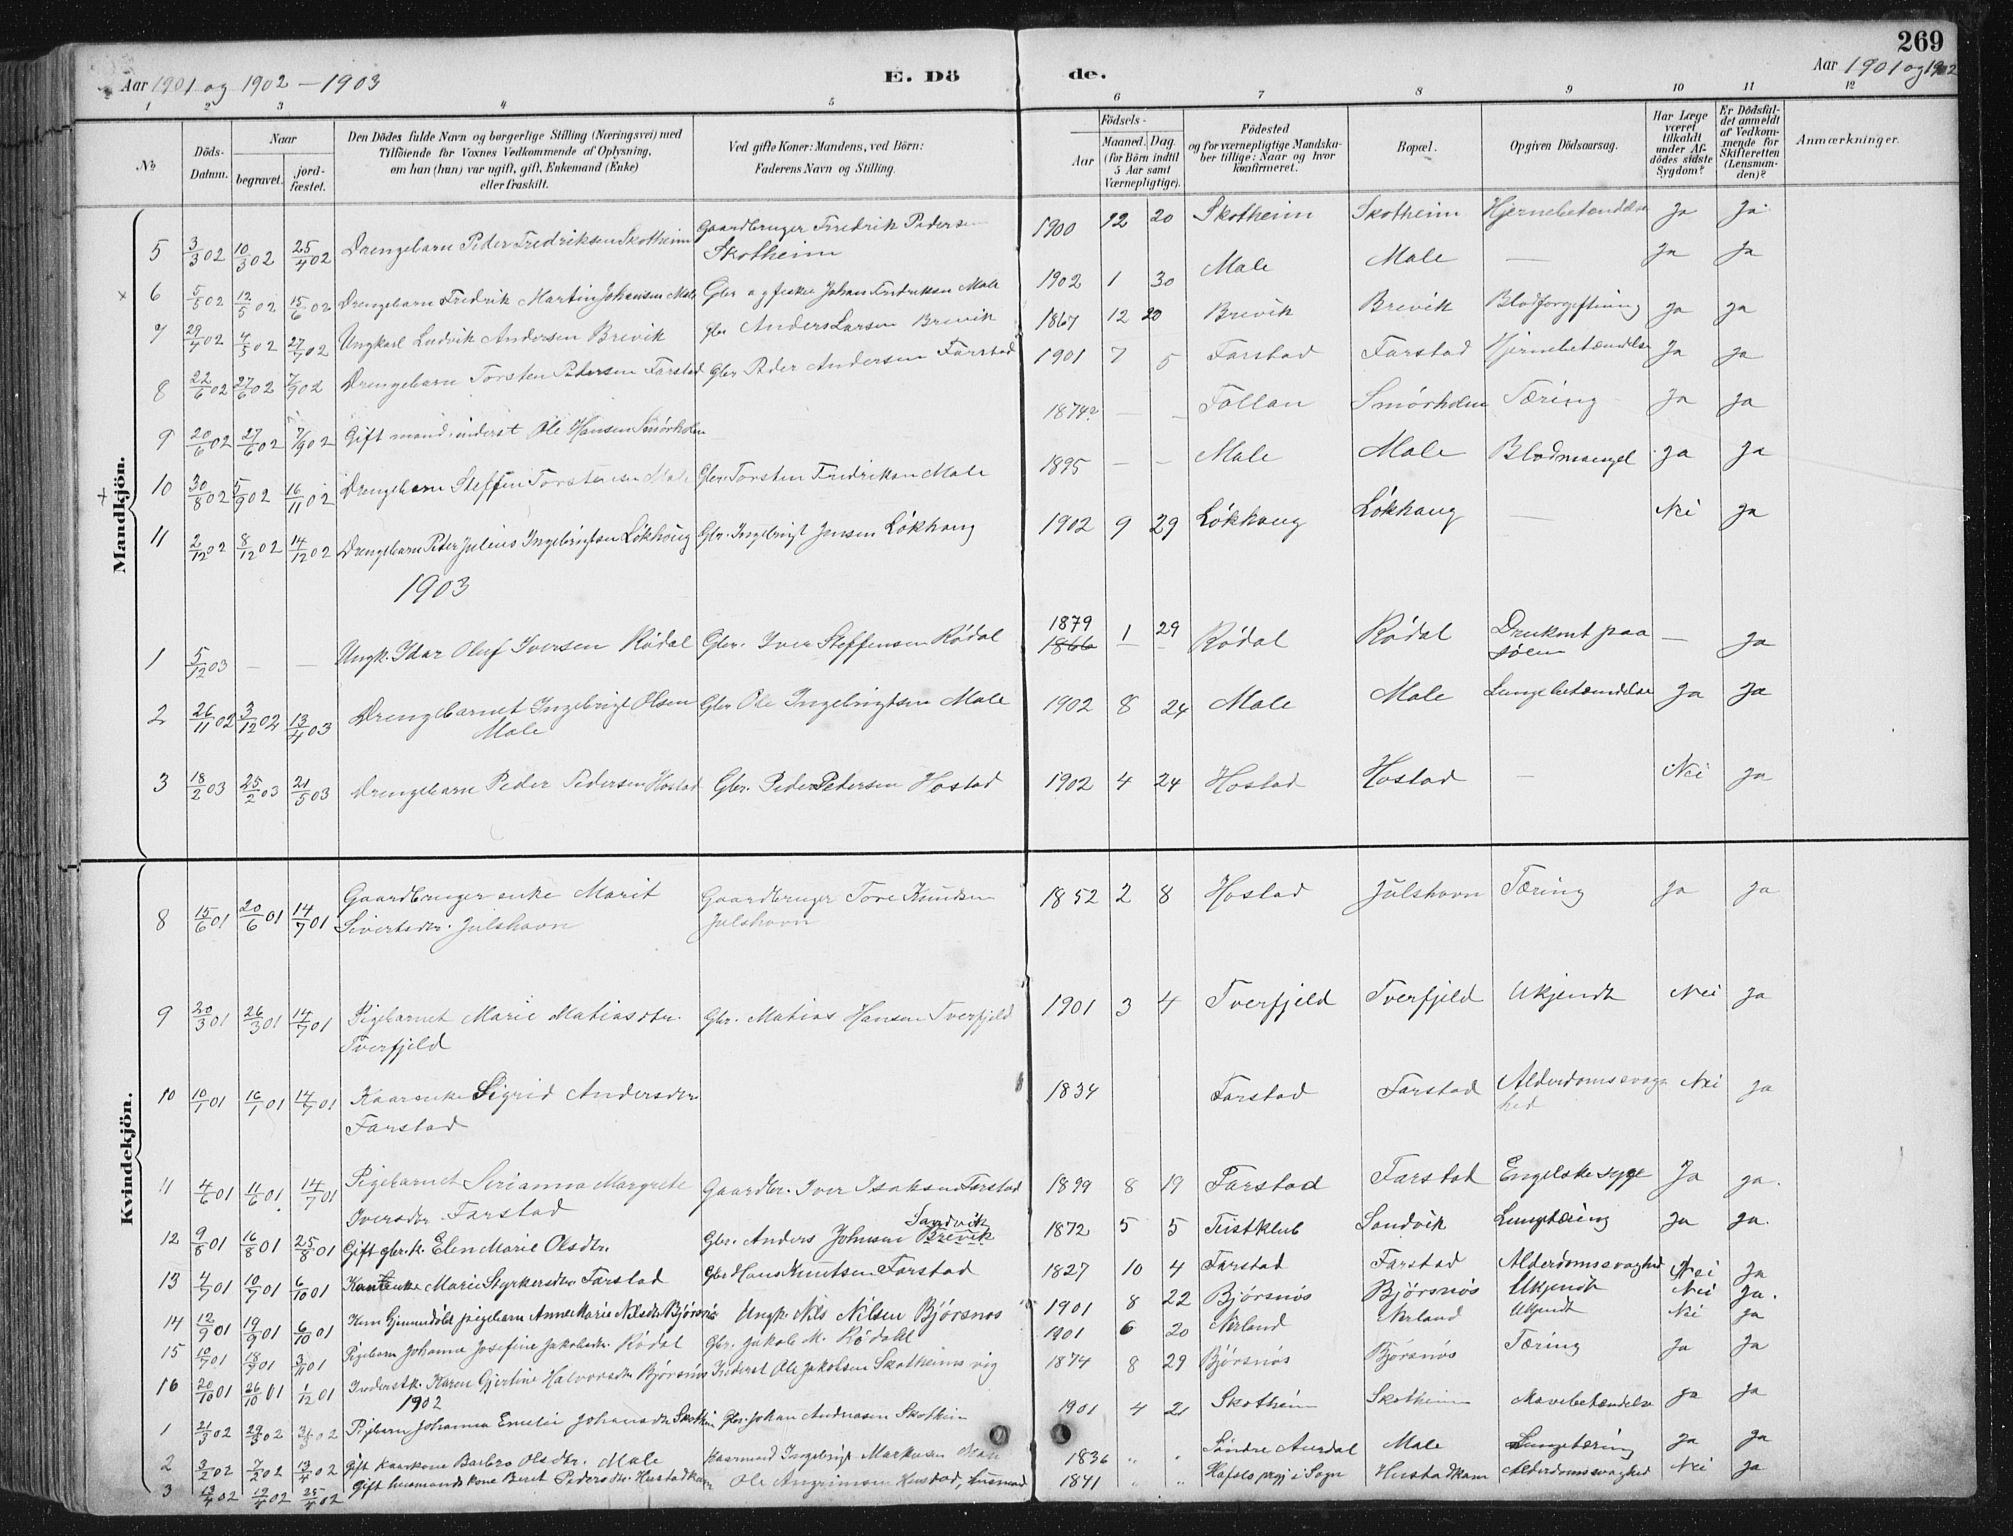 269
Aar 1901 og 1902 – 1903
E. Dö de.
Aar 1901 og 1902
1 2 3 4 5 6 7 8 9 10 11 12
No
Döds-Datum.
Naar begravet. jordfæstet.
Den Dödes fulde Navn og borgerlige Stilling (Næringsvei) med Tilföiende for Voxnes Vedkommende af Oplysning, om han (hun) var ugift, gift, Enkemand (Enke) eller fraskilt.
Ved gifte Koner: Mandens, ved Börn: Faderens Navn og Stilling.
Födsels-
Aar Maaned. Dag. (for Börn indtil 5 Aar samt Værnepligtige).
Födested og for værnepligtige Mandskaber tillige: Naar og hvor konfirmeret.
Bopæl.
Opgiven Dödsaarsag.
Har Læge været tilkaldt under Afdödes sidste Sygdom?
Er Dödsfaldet anmeldt af Vedkommende for Skifteretten (Lensmanden)?
Anmærkninger.
Mandkjön.
5 3/3 02 10/3 02 25/4 02 Drengebarn Peder Fredriksen Skotheim Gaardbruger Fredrik Pedersen Skotheim 1900 12 20 Skotheim Skotheim Hjernebetændelse Ja Ja
6 5/5 02 12/5 02 15/6 02 Drengebarn Fredrik Martin Johansen Male Gbr og fisker Johan Fredriksen Male 1902 1 30 Male Male — Ja Ja
7 29/4 02 4/5 02 27/7 02 Ungkarl Ludvik Andersen Brevik gbr Anders Larsen Brevik 1867 12 20 Brevik Brevik Blodforgiftning Ja ja
8 22/6 02 27/6 02 7/9 02 Drengebarn Torsten Pedersen Farstad Gbr Peder Andersen Farstad 1901 7 5 Farstad Farstad Hjernebetændelse Ja ja
9 20/6 02 27/6 02 7/9 02 Gift mand inderst Ole Hansen Smörholm 1874? — — Follan Smörholm Tæring Ja Ja
10 30/8 02 5/9 02 16/11 02 Drengebarn Steffen Torstensen Male Gbr. Torsten Fredriksen Male 1895 — — Male Male Blodmangel ja Ja
11 2/12 02 8/12 02 14/12 02 Drengebarn Peter Julius Ingebrigtsen Lökhaug Gbr. Ingebrigt Jensen Lökhaug 1902 9 29 Lökhaug Lökhaug — Nei Ja
1903
1 5/12 03 — — Ungk. Idar Oluf Iversen Rödal Gbr. Iver Steffensen Rödal 1879 1866 1 29 Rödal Rödal Druknet paa sjöen — Ja
2 26/11 02 3/12 02 13/4 03 Drengebarnet Ingebrigt Olsen Male Gbr Ole Ingebrigtsen Male 1902 8 24 Male Male Lungebetændelse Ja Ja
3 18/2 03 25/2 03 21/5 03 Drengebarn Peder Pedersen Hostad Gbr. Peder Pedersen Hostad 1902 4 24 Hostad Hostad — Nei Ja
Kvindekjön.
8 15/6 01 20/6 01 14/7 01 Gaardbruger enke Marit Sivertsdtr. Julshavn Gaardbruger Tore Knudsen Julshavn 1852 2 8 Hostad Julshavn Tæring Ja Ja
9 20/3 01 26/3 01 14/7 01 Pigebarnet Marie Matiasdtr. Tverfjeld Gbr. Matias Hansen Tverfjeld 1901 3 4 Tverfjeld Tverfjeld Ukjendt Nei Ja
10 10/1 01 16/1 01 14/7 01 Kaarenke Sigrid Andersdtr. Farstad 1834 Farstad Farstad Alderdomssvaghed Nei Ja
11 4/6 01 11/6 01 14/7 01 Pigebarnet Serianna Margrete Iversdtr. Farstad Gaardbr. Iver Isaksen Farstad 1899 8 19 Farstad Farstad Engelske syge Ja ja.
12 9/8 01 16/8 01 25/8 01 Gift gbr. k. Elen Marie Olsdtr. Gbr. Anders Johnsen Brevik Sandvik 1872 5 5 Teistklub Sandvik Lungetæring Ja Ja.
13 4/7 01 10/7 01 6/10 01 Kaarenke Marie Styrkersdtr Farstad Gbr Hans Knutsen Farstad 1827 10 4 Farstad Farstad Alderdomssvaghed Nei Ja
14 12/9 01 19/9 01 6/10 01 pigebarn Anne Marie Nilsdtr Björsnös Ungk. Nils Nilsen Björsnos 1901 8 22 Björsnös Björsnös Ukjendt Nei Ja.
15 10/7 01 18/7 01 Pigebarn Johanna Josefine Jakobsdtr. Rödal Gbr. Jakob M. Rödahl 1901 6 20 Nerland Nerland Ukjendt Nei Ja
16 20/10 01 26/10 01 1/12 01 Inderstk. Karen Gjertine Halvorsdtr Björsnös Inderst Ole Jakobsen Skotheimsvig 1874 8 29 Björsnös Björsnös Tæring Ja Ja
1902
1 21/3 02 29/3 02 Pigebarn Johanna Emelie Johansdtr Skotheim Gbr. Johan Andreasen Skotheim 1901 4 21 Skotheim Skotheim Mavebetændelse Ja Ja
2 3/2 02 7/2 02 13/4 02 Gift kaarkone Barbro Olsdtr. Male Kaarmand Ingebrigt Markusen Male 1836 " " Söndre Aurdal Male Lungetæring Ja Ja
3 13/4 02 19/4 02 25/4 02 Gift husmandskone Beret Pedersdtr. Hustadkam Ole Angrimsen Hustad, husmand 1841 " " Hafslo prgj i Sogn Hustadkam Alderdomssvaghed Nei Ja